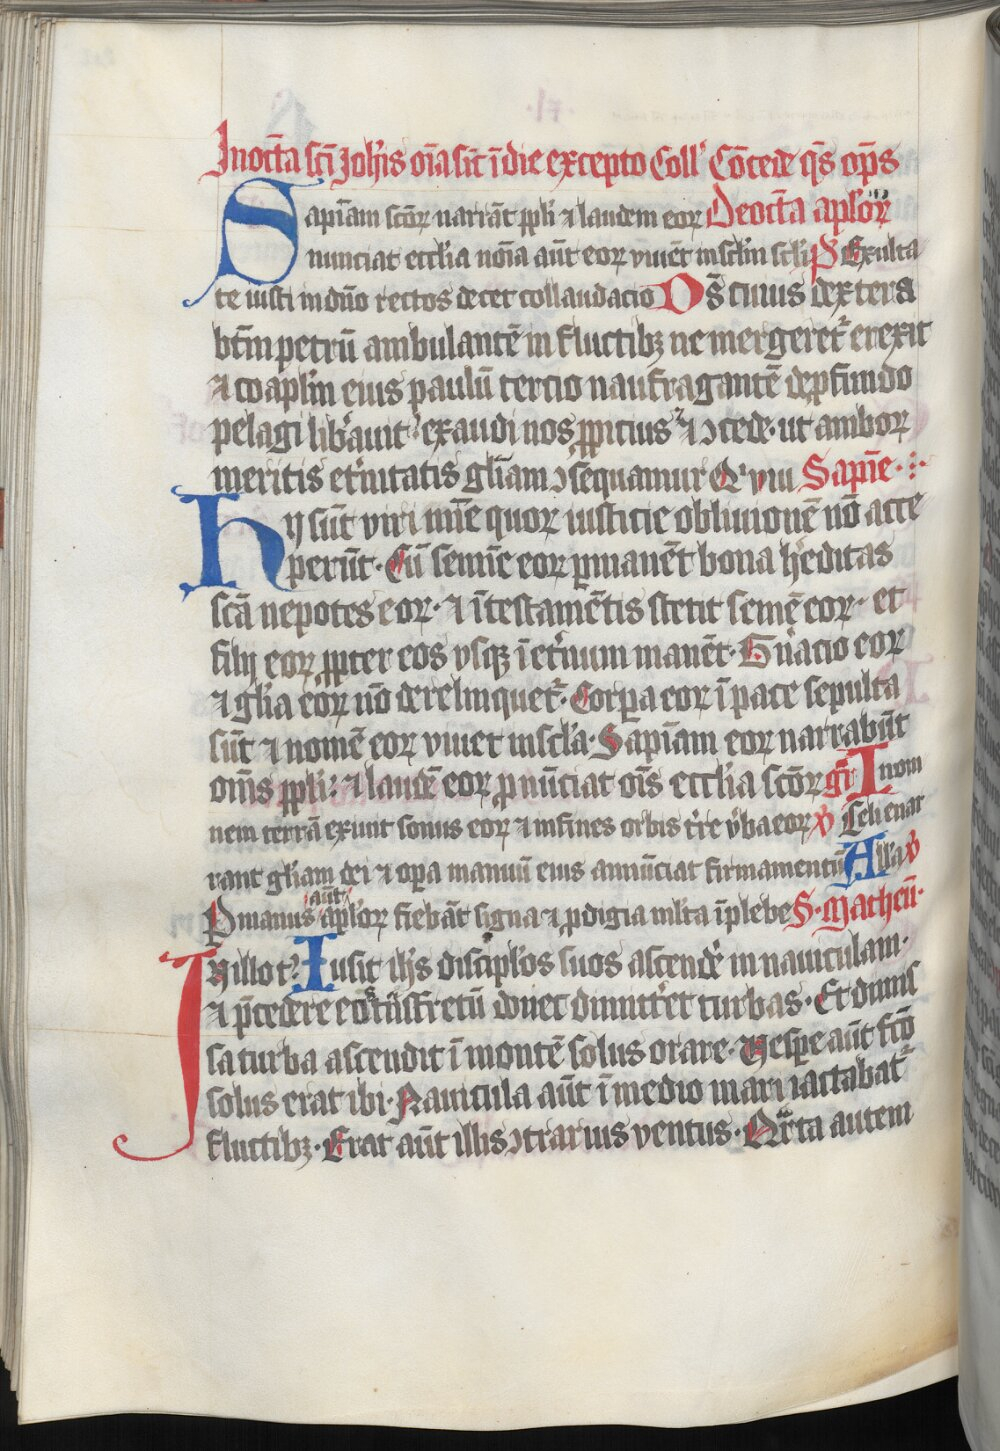 Inocta͞ sc͞i Joh'is o͞ia sic͞ i͞ die excepto Coll' Co͞cede q͞s op͞s
Sapi͞am sco͞ꝝ narra͞t ppl'i ⁊ laudem eoꝝ Deocta͞ aposl'oꝝ
nunciat eccl'ia no͞ia au͞t eoꝝ viue͞t inscl'm scl'i P͞s Exulta
te iusti in dn͞o rectos decet collaudacio D͞s cuius dextera
bt͞m petru͞ ambulante͞ in fluctibꝫ ne mergeret᷑ erexit
⁊ coapl'm eius paulu͞ tercio naufragante͞ de ꝓfundo
pelagi lib'auit· exaudi nos ꝓpicius ⁊ ꝯcede· ut amboꝝ
meritis et'nitatis gl'iam ꝯsequamur Q' viu Sapi͞e·
Hij su͞t viri mi͞e quoꝝ iusticie obliuione͞ no͞ acce
peru͞t· Cu͞ semi͞e eoꝝ ꝑmane͞t bona h'editas
sc͞a nepotes eoꝝ· ⁊ i͞ testame͞tis stetit seme͞ eoꝝ· et
filij eoꝝ ꝓpter eos vsqꝫ i͞ et'num mane͞t· G'nacio eoꝝ
⁊ gl'ia eoꝝ no͞ derelinquet᷑· Corꝑa eoꝝ i͞ pace sepulta
su͞t ⁊ nome͞ eoꝝ viuet in scl'a· Sapi͞am eoꝝ narrabu͞t
om͞s ppl'i· ⁊ laude͞ eoꝝ pnu͞ciat o͞is eccl'ia sco͞ꝝ gr͞ In om
nem terra͞ exiuit sonus eoꝝ ⁊ in fines orbis t're v'ba eoꝝ v̶ Celi enar
rant gl'iam dei ⁊ oꝑa manuu͞ eius annu͞ciat firmamentu͞ All'a v̶
P manus au͞t apl'oꝝ fieba͞t signa ⁊ ꝓdigia ml'ta i͞ plebe S· Matheu͞·
In illo t᷑· Iusit ih͞s discipl'os suos ascend'e in nauiculam·
⁊ p͞cedere eu͞ t͞nsfretu͞ donec dimitt'et turbas· Et dimis
sa turba ascendit i͞ monte͞ solus orare· Vesꝑe au͞t fc͞o
solus erat ibi· Nauicula au͞t i͞ medio mari iactabat᷑
fluctibꝫ· Erat au͞t illis ꝯtrarius ventus· Qr͞ta autem